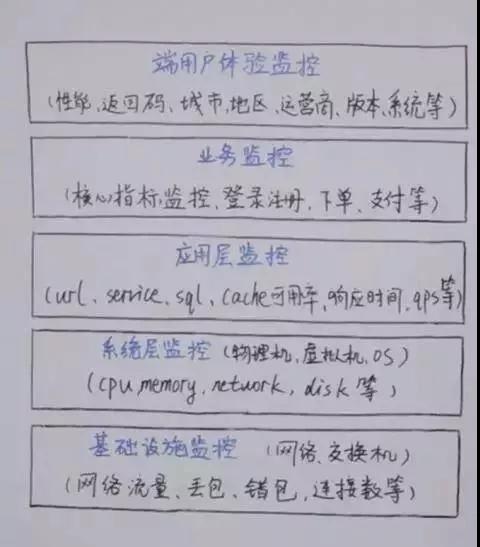 端用户体验监控
(性能、返回码、城市、地区、运营商、版本、系统等)
业务监控
(核心指标监控、登录注册、下单、支付等)
应用层监控
(url、service、sql、cache可用率、响应时间、qps等)
系统层监控 (物理机、虚拟机、OS)
(cpu,memory、network、disk等)
基础设施监控 (网络、交换机)
(网络流量、丢包、错包、连接数等)